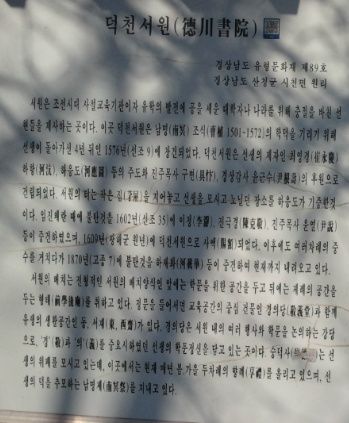 덕천서원(德川書院)
경상남도 유형문화재 제89호
경상남도 산청군 시천면 원리
서원은 조선시대 사립교육기관이자 유학의 발전에 공을 세운 대학자나 나라를 위해 충절을 바친 선
현들을 제사하는 곳이다. 이곳 덕천서원은 남명(南冥) 조식(曺植 1501-1572)의 학덕을 기리기 위해
선생이 돌아가신 4년 뒤인 1576년(선조 9)에 창건되었다. 덕천서원은 선생의 제자인 최영경(崔永慶)
하항(河沆) 하응도(河應圖) 등의 주도와 진주목사 구변(具忭), 경상감사 윤근수(尹根壽)의 후원으로
건립되었다. 서원의 터는 작은 집 지어놓고 선생을 모시고 노닐던 장소를 하응도가 기증한 것
이다. 임진왜란 때에 불탄것을 1602년(선조 35)에 이정(李瀞), 진극경(陳克敬), 진주목사 윤열(尹說)
등이 중건하였으며, 1609년(광해군 원년)에 덕천서원으로 사액(賜額)되었다. 이후에도 여러차례의 중
수를 거치다가 1870년(고종 7)에 불탄것을 하재화(河載華) 등이 중건하여 현재까지 내려오고 있다.
서원의 배치는 전형적인 서원의 배치양식인 앞에는 학문을 위한 공간을 두고 뒤에는 제례의 공간을
두는 형태(前學後廟)를 취하고 있다. 정문을 들어서면 교육공간의 중심 전문인 경의당(敬義堂)과 함께
유생의 생활공간인 동, 서재(東, 西齋)가 있다. 경의당은 서원 내의 여러 행사와 학문을 논의하는 강당
으로, '경'(敬)과 '의'(義)를 중요시하였던 선생의 학문정신을 담고 있는 곳이다. 숭덕사는 선
생의 위패를 모시고 있는데, 이곳에서는 현재 매년 봄 가을 두차례의 향례(享禮)를 올리고 있으며, 선
생의 덕을 추모하는 남명제(南冥祭)를 지내고 있다.